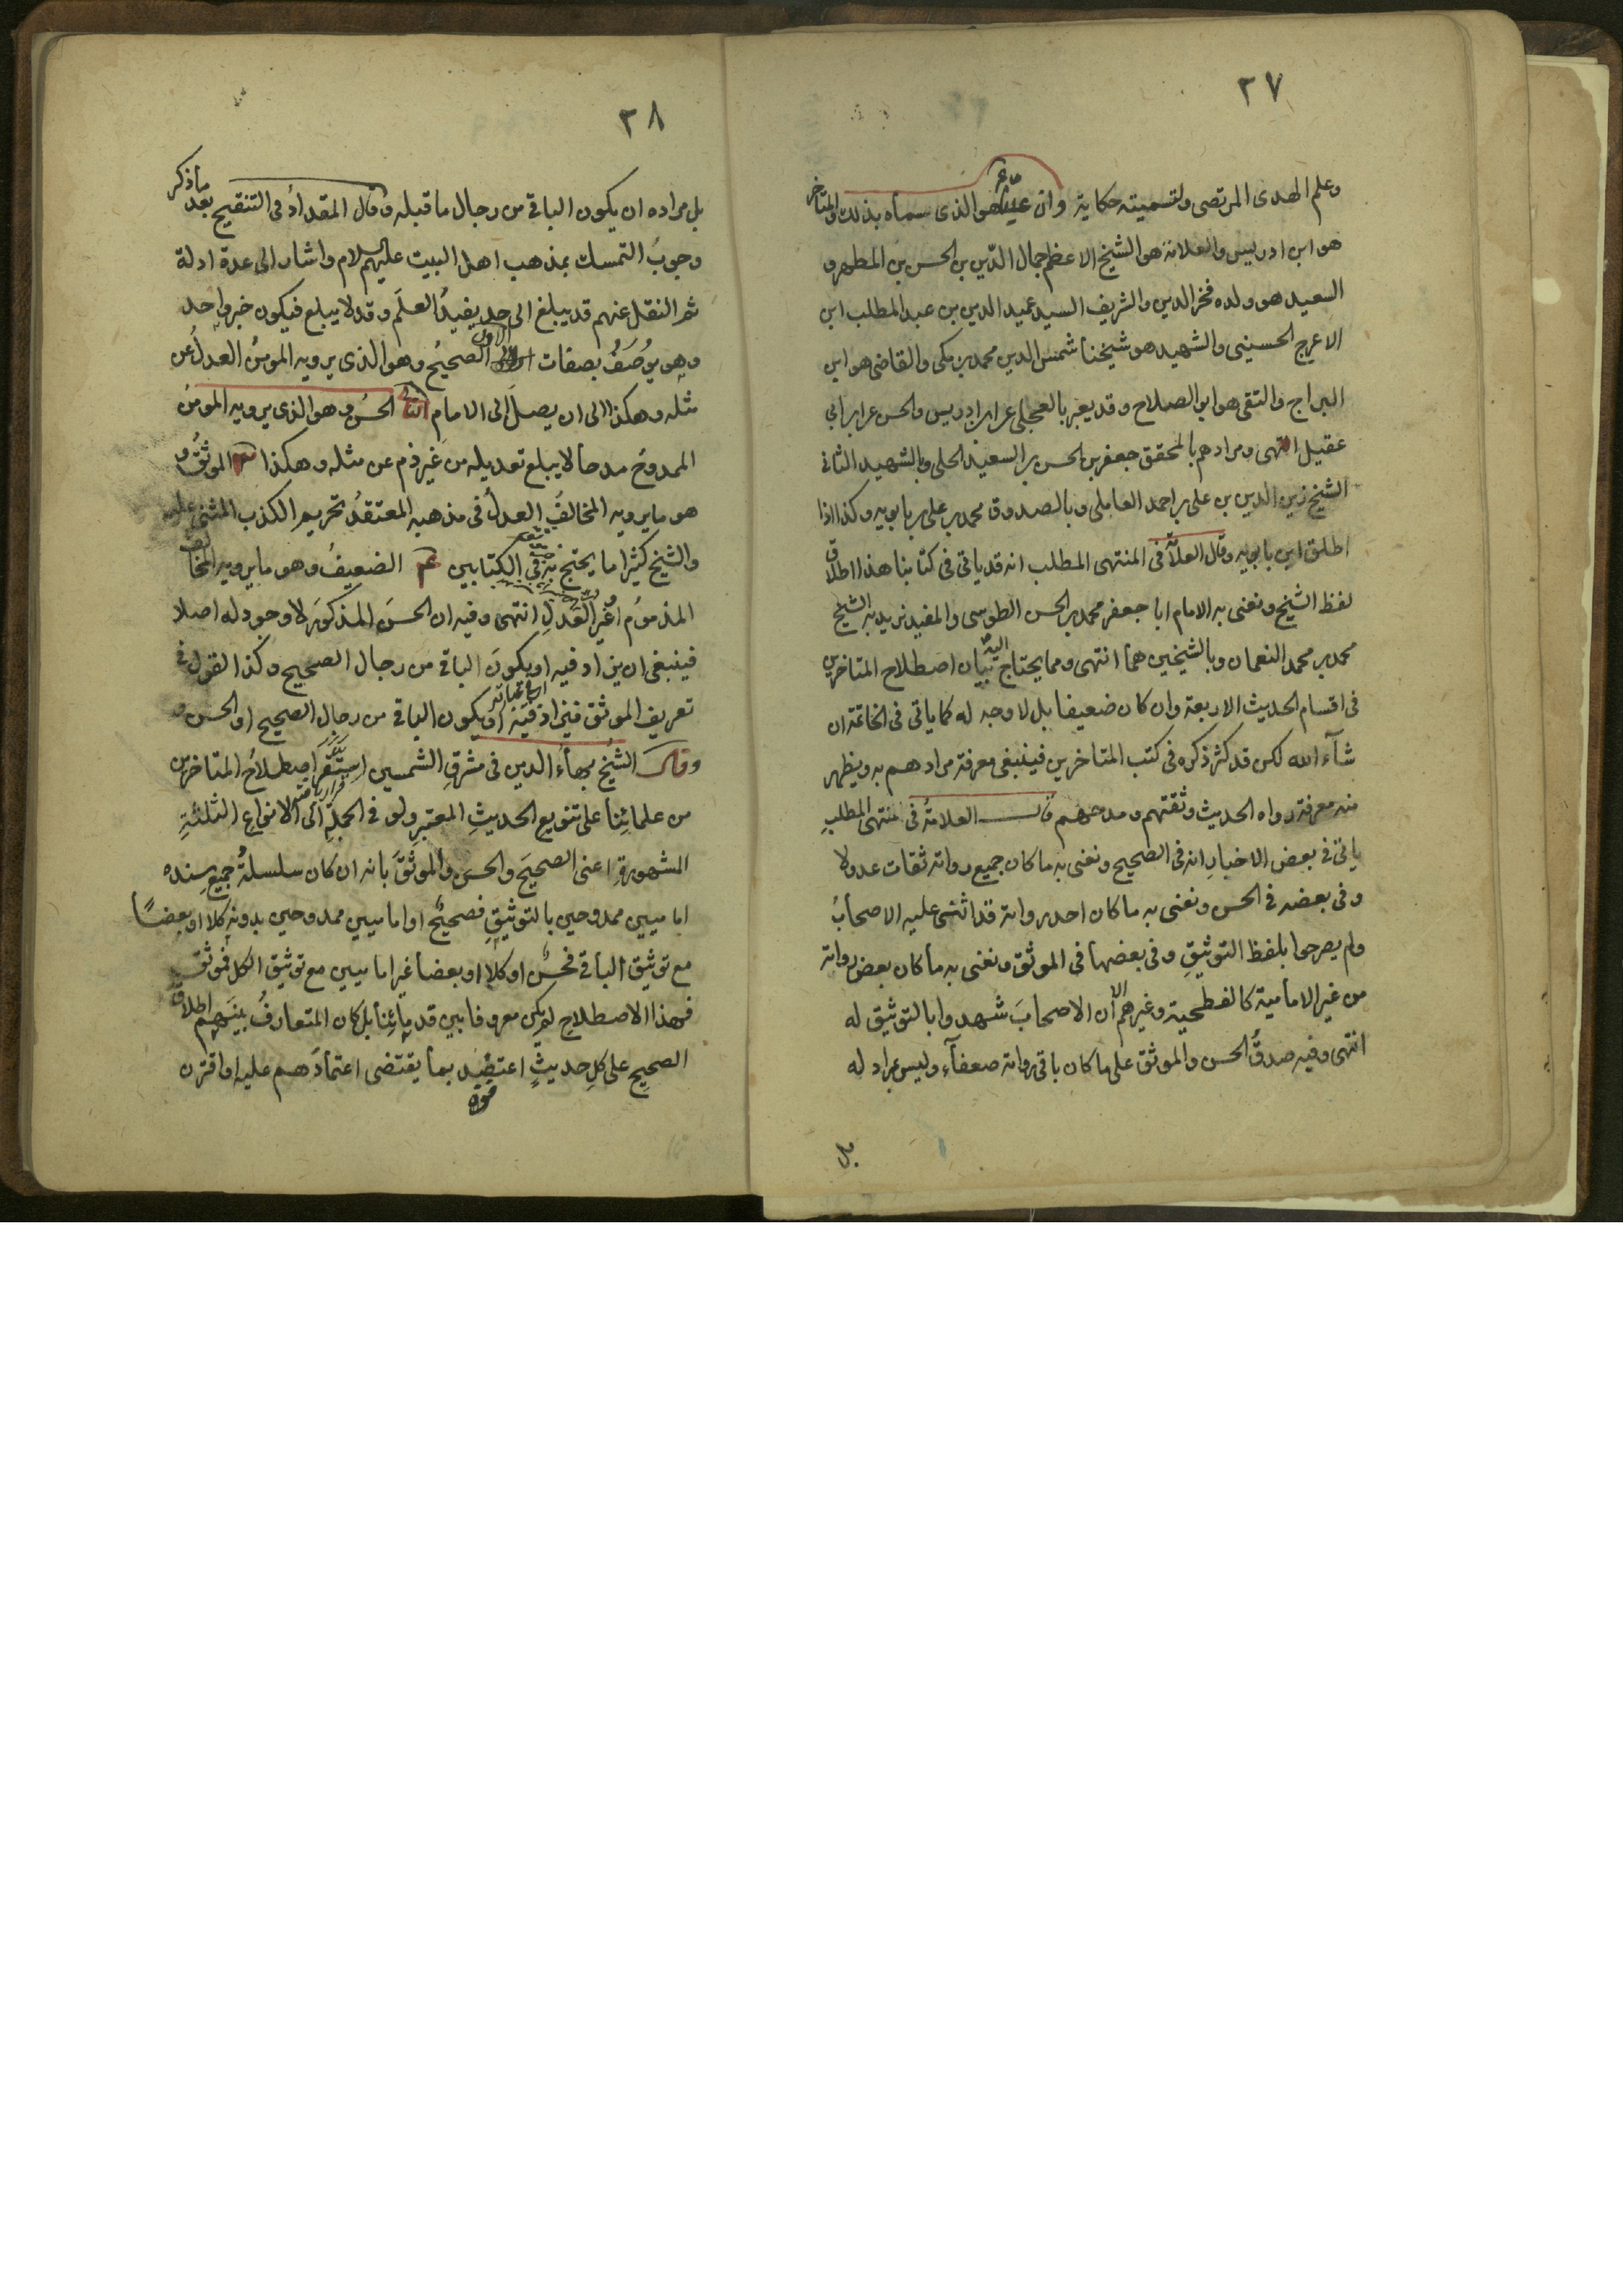 ٢٧
وعلم الهدى المرتضى ولتسميته حكاية وان عليا ع م هو الذى سماه بذلك والمتاخر
هو ابن ادريس والعلامة هو الشيخ الاعظم جمال الدّين بن الحسن بن المطهر و
السعيد هو ولده فخر الدين والشريف السيد عميد الدين بن عبد المطلب ابن
الاعرج الحسينى والشهيد هو شيخنا شمس الدين محمد بن مكى والقاضى هو ابن
البراج والتقى هو ابو الصلاح وقد يعبر بالعجلى عن ابن ادريس والحسن عن ابن ابي
عقيل انتهى ومرادهم بالمحقق جعفر بن الحسن بن السعيد الحلى وبالشهيد الثانى
الشيخ زين الدين بن على بن احمد العاملى وبالصدوق محمد بن على بن بابويه وكذا اذا
اطلق ابن بابويه وقال العلامة فى المنتهى المطلب انه قد ياتى فى كتابنا هذا اطلاق
لفظ الشيخ ونعنى به الامام ابا جعفر محمد بن الحسن الطوسى والمفيد نريد به الشيخ
محمد بن محمد النعمان وبالشيخين هما انتهى ومما يحتاج اليه بيان اصطلاح المتاخرين
فى اقسام الحديث الاربعة وان كان ضعيفا بل لا وجه له كما ياتى فى الخاتمة ان
شآء الله لكن قد كثر ذكره فى كتب المتاخرين فينبغى معرفة مرادهم به ويظهر
منه معرفة رواه الحديث وثقتهم ومدحهم قال العلامةُ فى منتهى المطلبِ
ياتى فى بعض الاخبارِ انه فى الصحيح ونعنى به ما كان جميع رواته ثقات عدولا
وفى بعضه فى الحسن ونعنى به ما كان احد رواته قد اثنى عليه الاصحابُ
ولم يصرحوا بلفظ التوثيقِ وفى بعضها فى الموثق ونعنى به ما كان بعض رواته
من غير الامامية كالفطحية وغيرهم الا ان الاصحابَ شهدوا بالتوثيق له
انتهى وفيه صدقُ الحسن والموثق على ما كان باقى رواته ضعفآء وليس بمراد له
بل
٢٨
بل مراده ان يكون الباقى من رجال ما قبله وقال المقدادُ فى التنقيح بعد ما ذكر
وجوبَ التمسك بمذهب اهل البيت عليهم السلام واشار الى عدة ادلة
ثم النقل عنهم قد يبلغ الى حد يفيدُ العلمَ وقد لا يبلغ فيكون خبر واحد
وهو يُوصَفُ بصفات الاول الصحيحُ وهو الذى يرويه المومنُ العدلُ عن
مثله وهكذا الى ان يصلَ الى الامام الحسنُ وهو الذى يرويه المومنُ
الممدوحُ مدحا لا يبلغ تعديله من غير ذم عن مثله وهكذا الموثقُ و
هو ما يرويه المخالفُ العدلُ فى مذهبه المعتقدُ تحريم الكذب المثنى عليه
والشيخ كثيرا ما يحتج به فى الكتابين الضعيفُ وهو ما يرويه المخالف
المذمومُ او غير العَدلِ انتهى وفيه ان الحسنَ المذكورَ لا وجود له اصلا
فينبغى ان يزاد فيه او يكونَ الباقى من رجال الصحيح وكذا القول فى
تعريف الموثق فيزاد فيه او يكون الباقى من رجالِ الصحيح او الحسن و
وقال الشيخُ بهاءُ الدين فى مشرقِ الشمسين اِستَقَرَ اصطلاحُ المتاخرين
من علمائِنا على تنويع الحديثِ المعتبرِ ولو فى الجملةِ الى الانواع الثلثةِ
المشهورةِ اعنى الصحيحَ والحسن والموثقَ بانه ان كان سلسلةُ جميعِ سنده
اماميين ممدوحين بالتوثيقِ فصحيحٌ او اماميين ممدوحين بدونه كلا او بعضًا
مع توثيق الباقى فحسنٌ او كلا او بعضا غير اماميين مع توثيق الكل فموثق
فهذا الاصطلاح لم يكن معروفا بين قدمائِنا بل كان المتعارفُ بينَهم اطلاقَ
الصحيحِ على كلِ حديثٍ اعتضد بما يقتضى اعتمادَهم عليه او اقترن
قوة